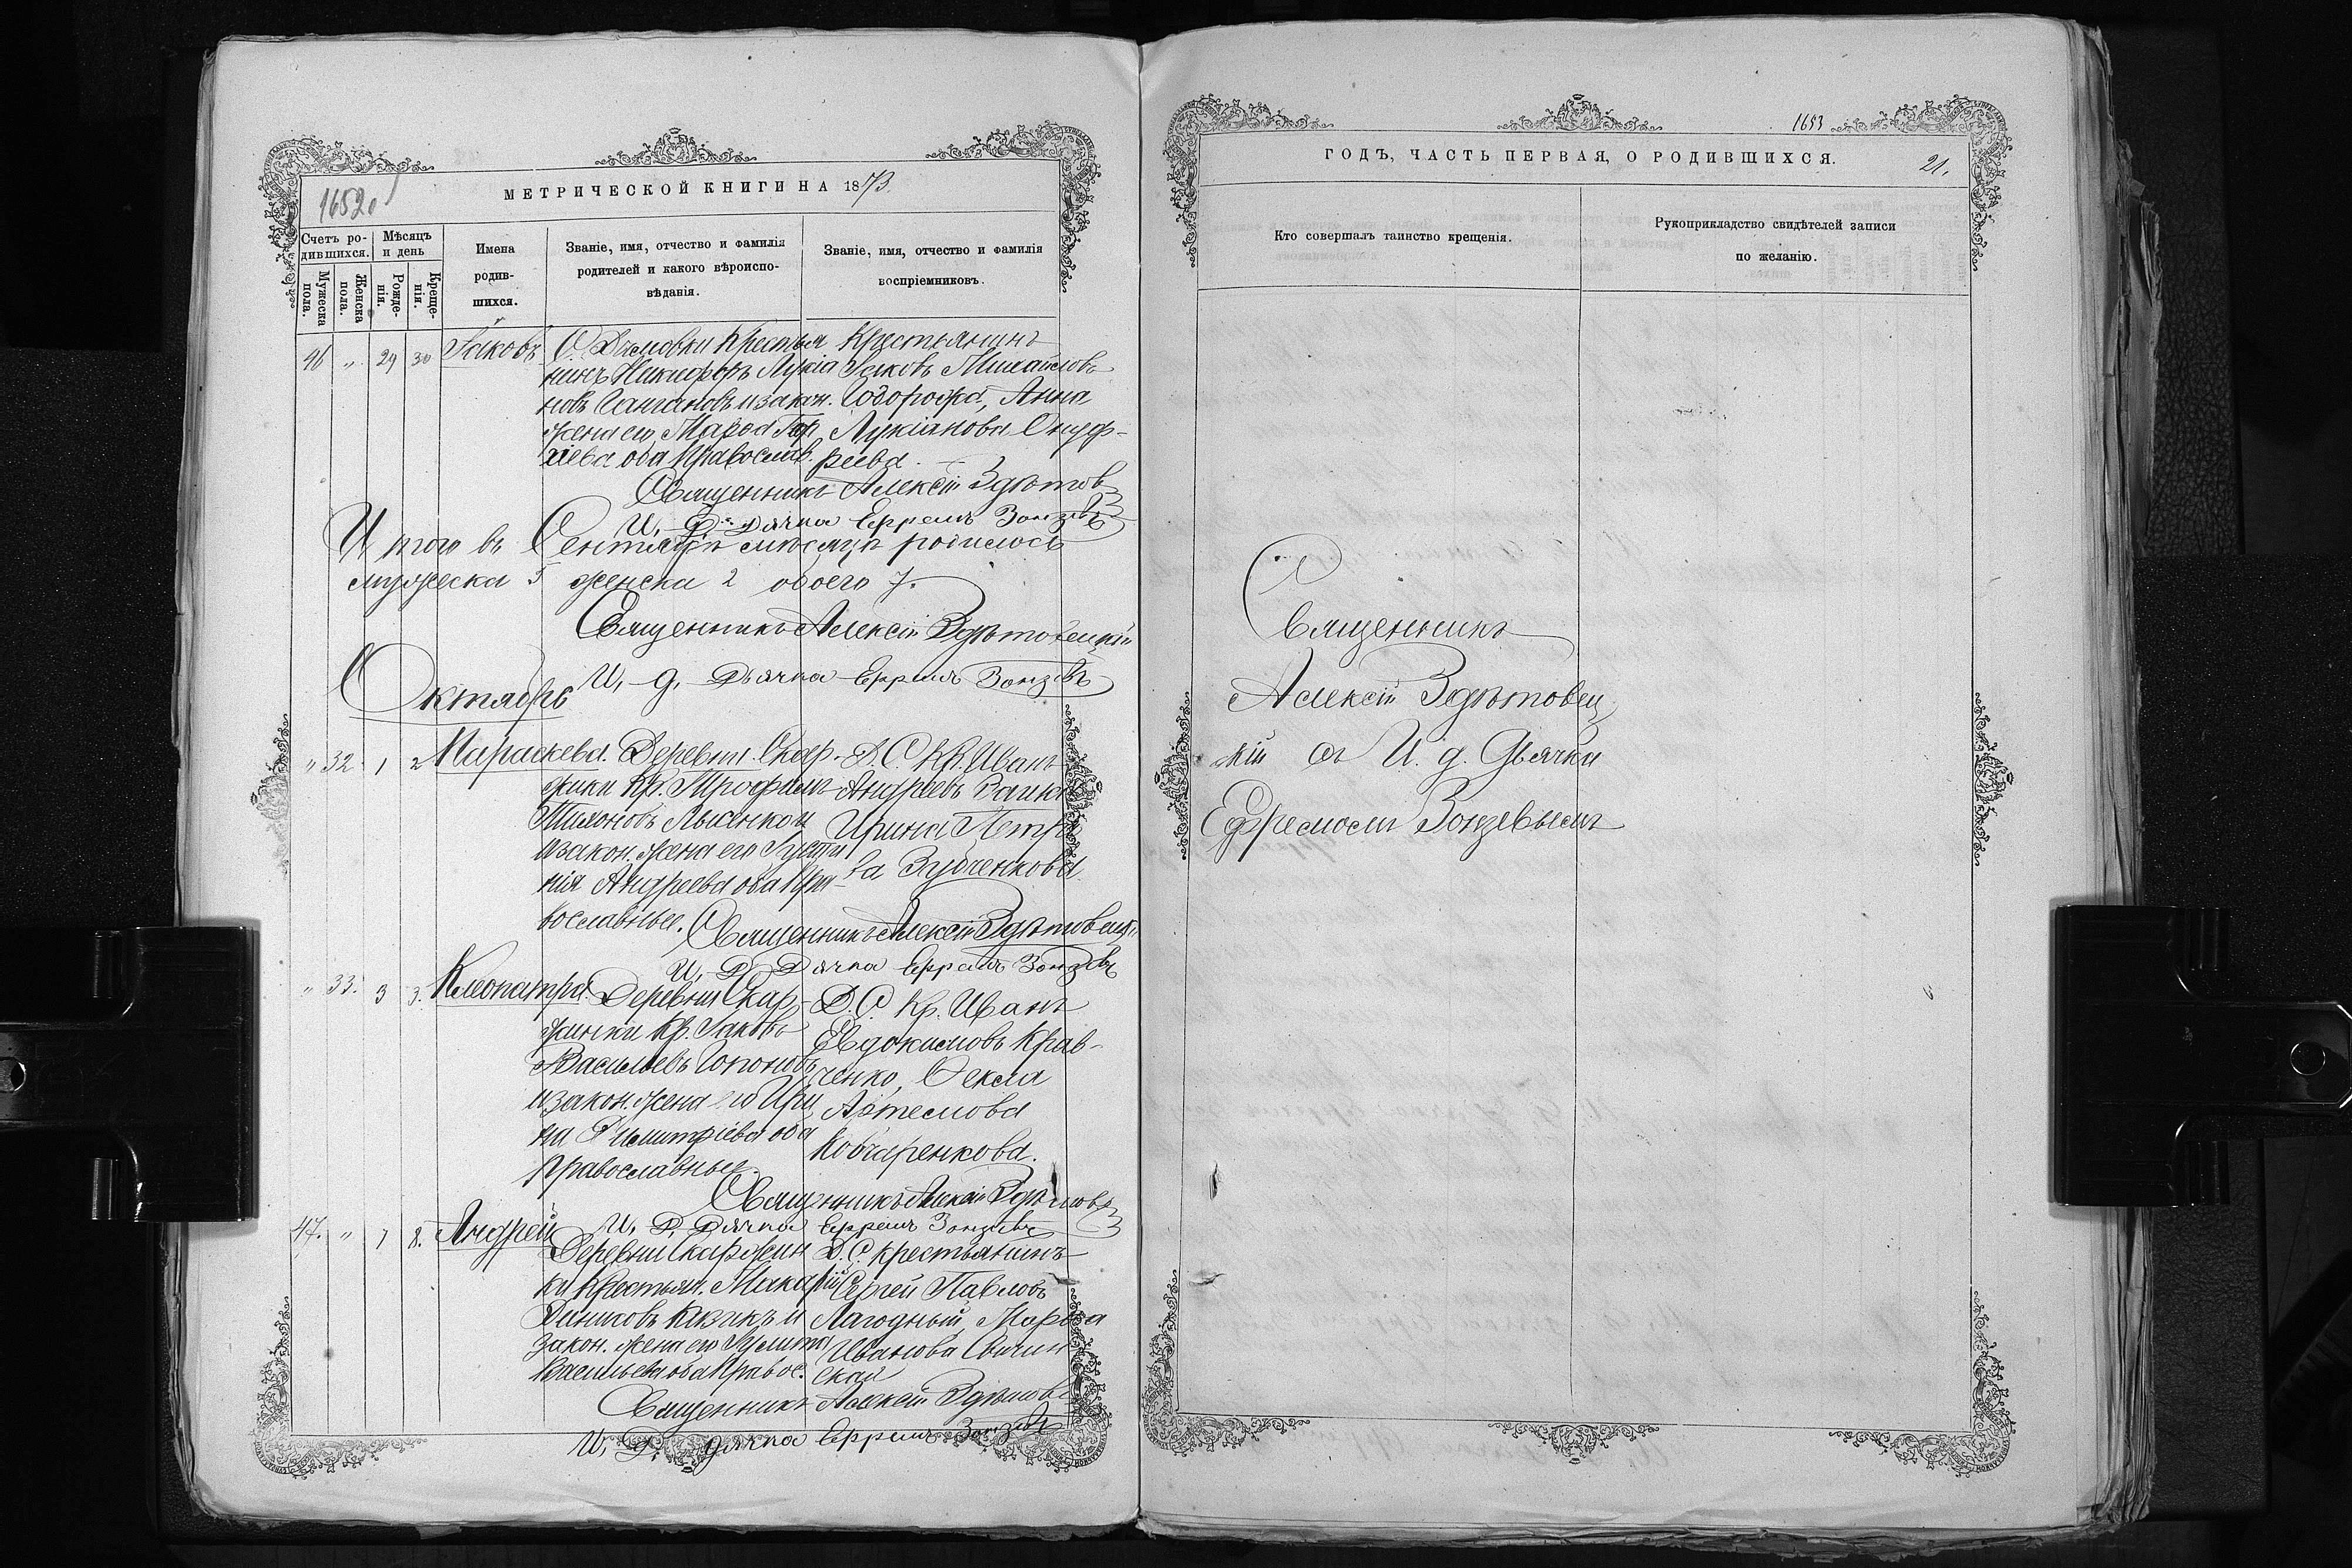 1652.
МЕТРИЧЕСКОЙ КНИГИ НА 1873
Счетъ ро-
дившихся.
Мѣсяцъ
и день
Мужеска
пола.
Женска
пола.
Рожде-
нія.
Креще-
нія.
Имена
родив-
шихся.
Званіе, имя, отчество и фамилія
родителей и какого вѣроиспо-
вѣданія.
Званіе, имя, отчество и фамилія
воспріемниковъ.
46 " 29 30 Іаковъ
Крестья
нинъ Никифоръ Лукіа
новъ и закон.
жена его Марѳа
оба Православ.
Крестьянинъ
Іаковъ Михайловъ
Анна
Лукіанова Онуф-
реева.
Священникъ Алексій Здѣтов
И. Д. Дячка Ефремъ
Итого въ Сентябрѣ мѣсяцѣ родилось
мужеска 5 женска 2 обоего 7.
Священникъ Алексій Здѣтовецкій
И. д. Дьячка Ефремъ
Октябрь
" 32 1 2 Параскева.
Деревни Скар-
жинки Кр. Трофимъ
и закон. жена его Густи
нія Андреева оба Пра-
вославные.
Д. С. Кр. Иванъ
Андреевъ
Ирина Петро
ва Зубченкова
Священникъ Алексій Здѣтовецкі
И. Д. Дячка Ефремъ
" 33. 3 3. Клеопатра.
Деревни Скар-
жинки Кр. Іаковъ
Васильевъ
и закон. жена его Ири
на Димитріева оба
православные.
Д. С. Кр. Иванъ
Евдокимовъ Крав-
ченко, Ѳекла
Артемова
Священникъ Алексій Здѣтов
И. Д. Дячка Ефремъ
47. " 7 8. Андрей
Деревни Скаржин
ки Крестьян. Макарій
и
закон. жена его Іулита
Васильева оба Правос.
Д. С. крестьянинъ
Сергей Павловъ
Лагодный, Марѳа
Иванова
ская
Священникъ Алексій Здѣтов
И. Д. дячка Ефремъ
1653
ГОДЪ, ЧАСТЬ ПЕРВАЯ, О РОДИВШИХСЯ.
21.
Кто совершалъ таинство крещенія.
Рукоприкладство свидѣтелей записи
по желанію.
Священникъ
Алексій Здѣтовец
кій съ И. д. Дьячка
Ефремомъ